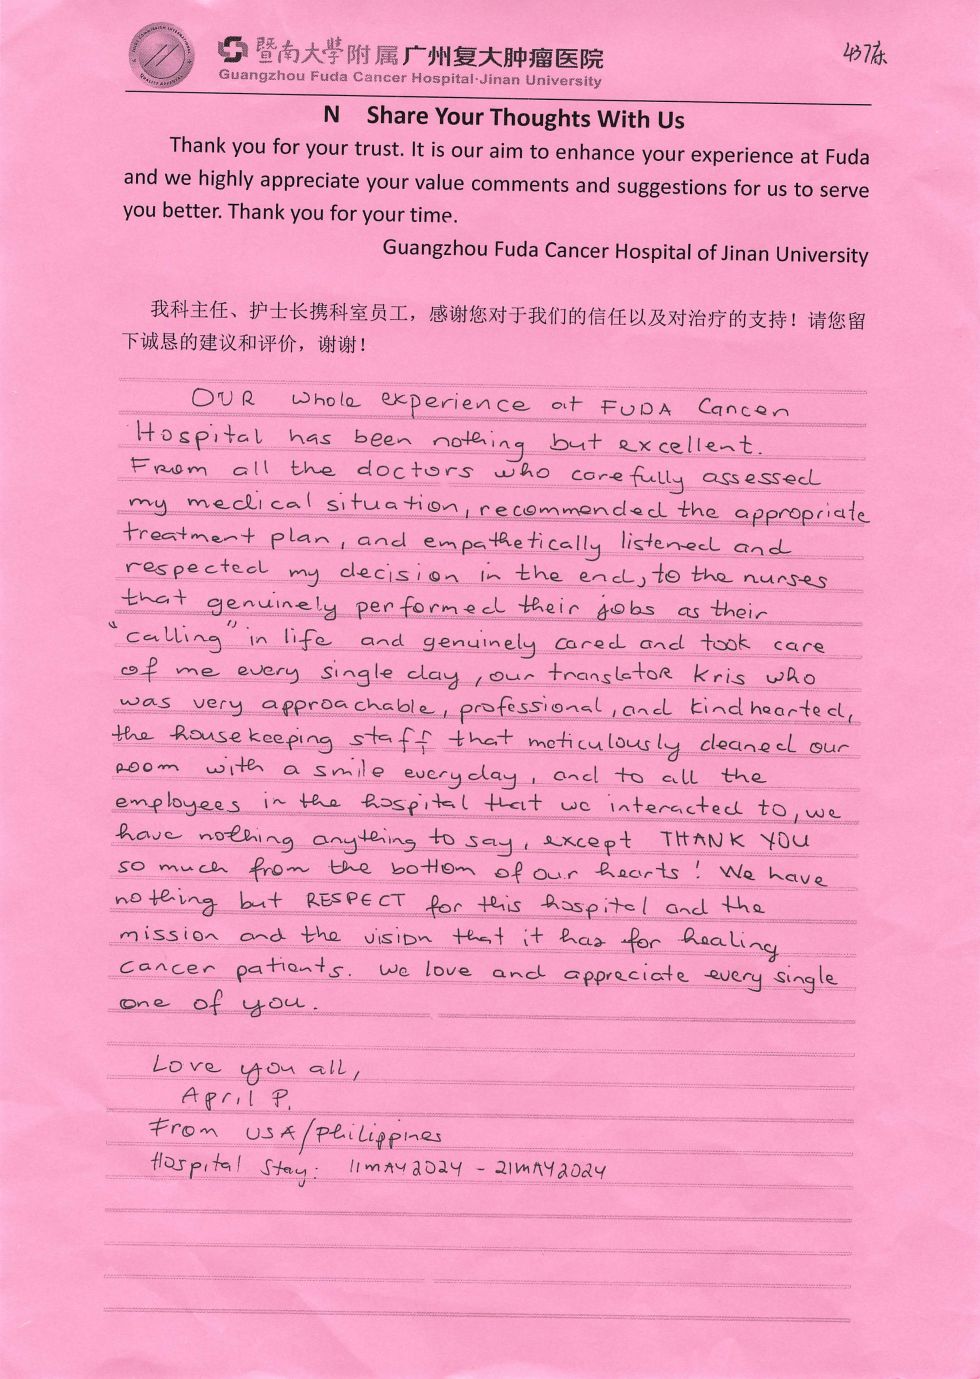 437床
暨南大学附属广州复大肿瘤医院
Guangzhou Fuda Cancer Hospital·Jinan University
N Share Your Thoughts With Us
Thank you for your trust. It is our aim to enhance your experience at Fuda
and we highly appreciate your value comments and suggestions for us to serve
you better. Thank you for your time.
Guangzhou Fuda Cancer Hospital of Jinan University
我科主任、护士长携科室员工，感谢您对于我们的信任以及对治疗的支持！请您留
下诚恳的建议和评价，谢谢！
OUR whole experience at FUDA Cancer
Hospital has been nothing but excellent.
From all the doctors who carefully assessed
my medical situation, recommended the appropriate
treatment plan, and empathetically listened and
respected my decision in the end, to the nurses
that genuinely performed their jobs as their
"calling" in life and genuinely cared and took care
of me every single day, our translator Kris who
was very approachable, professional, and kindhearted,
the housekeeping staff that meticulously cleaned our
room with a smile everyday, and to all the
employees in the hospital that we interacted to, we
have nothing anything to say, except THANK YOU
so much from the bottom of our hearts! We have
nothing but RESPECT for this hospital and the
mission and the vision that it has for healing
cancer patients. We love and appreciate every single
one of you.
Love you all,
April P.
From USA/Philippines
Hospital Stay: 11MAY2024 - 21MAY2024